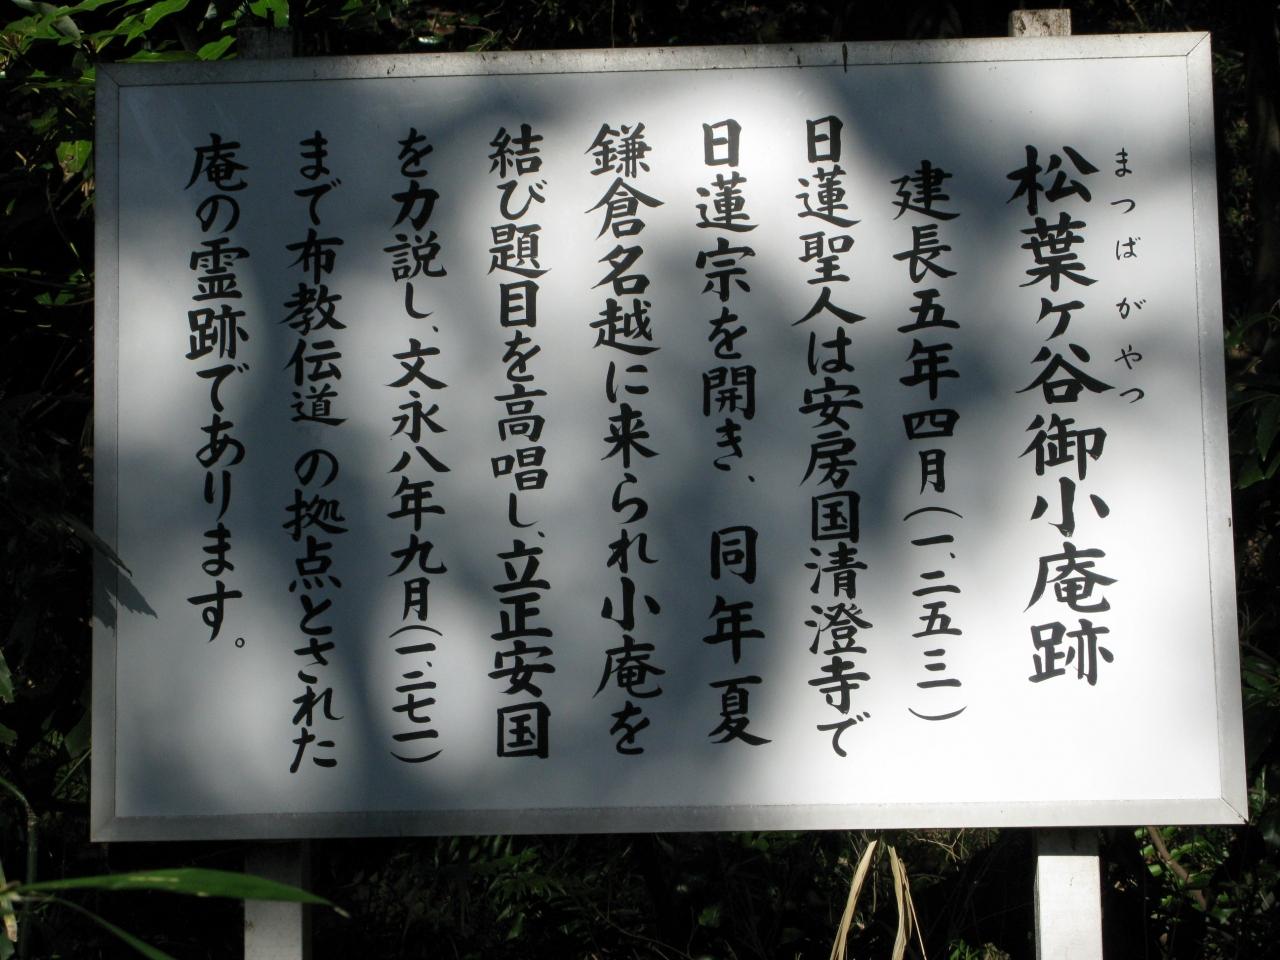 まつばがやつ
松葉ヶ谷御小庵跡
建長五年四月(一、二五三)
日蓮聖人は安房国清澄寺で
日蓮宗を開き、同年夏
鎌倉名越に来られ小庵を
結び題目を高唱し、立正安国
を力説し、文永八年九月(一、二七一)
まで布教伝道の拠点とされた
庵の霊跡であります。